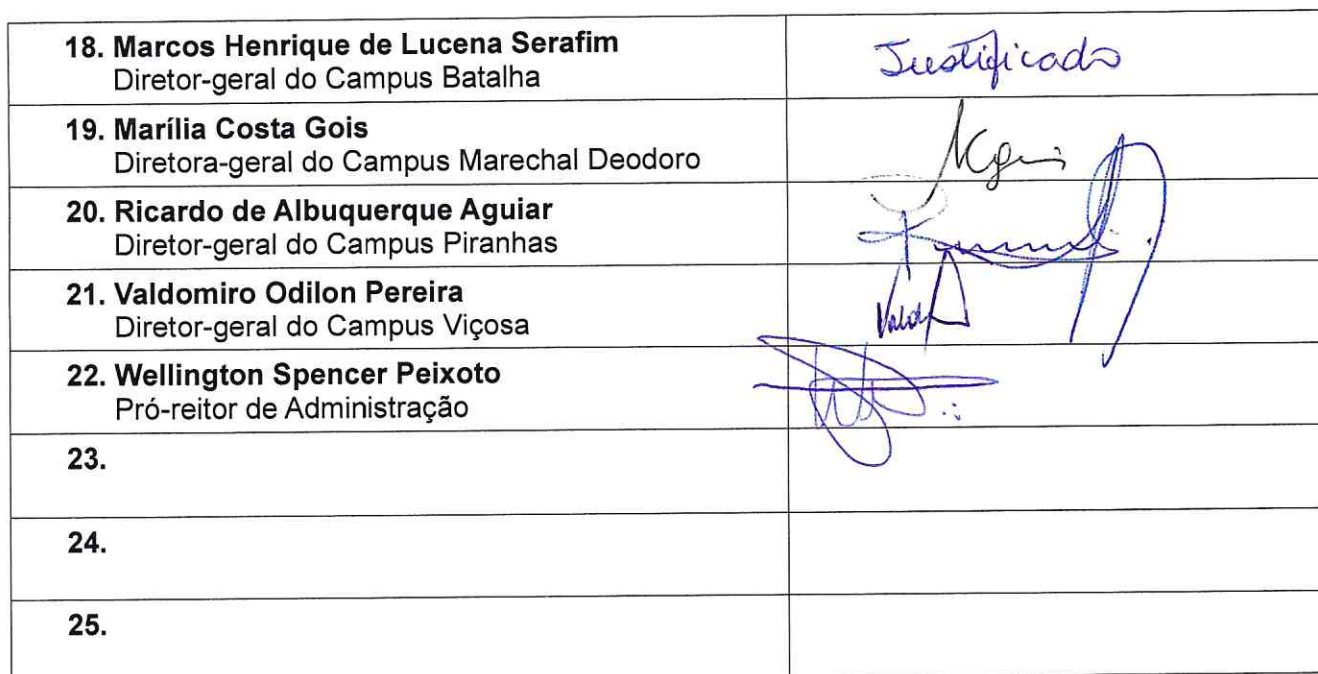 18. Marcos Henrique de Lucena Serafim
Diretor-geral do Campus Batalha
Justificado
19. Marília Costa Gois
Diretora-geral do Campus Marechal Deodoro
20. Ricardo de Albuquerque Aguiar
Diretor-geral do Campus Piranhas
21. Valdomiro Odilon Pereira
Diretor-geral do Campus Viçosa
22. Wellington Spencer Peixoto
Pró-reitor de Administração
23.
24.
25.